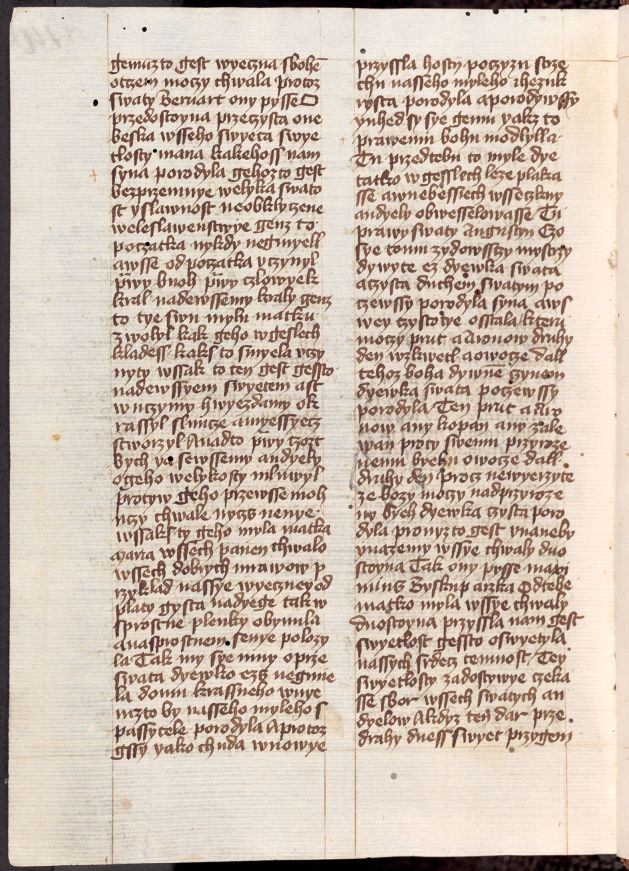 gemuz to gest wyeczna sbohē
otczem moczy chwala protoz
swaty Bernart ony pysse
przedostoyna przeczysta one
beska wsseho swyeta swye
tlosty maria kakehoss nam
syna porodyla gehoz to gest
bezpremnye welyka swato
st yslawnost neobklyczene
weleslawenstwye genz to
poczatka nykdy negmyell
awsse od poczatka vczynyl
prwy buoh prwy czlowyek
kral nadewssemy kraly genz
to tye swu mylu matku
zwolyl kak geho wgeslech
kladess kaks to smyela vczy
nyty wssak to ten gest gessto
nadewssyem swyetem ast
wuczymy hwyezdamy ok
rassyl sluncze amyessyecz
stworzyl Anadto prwy tzozt
bych ye sewssemy andyely
ogeho welykosty mluwyl
protyw geho przewsse moh
uczy chwale nyczs nenye
wssaks ty geho myla matka
maria wssech panen chwalo
wssech dobrych mrawow p
rzyklad nassye wyeczney od
platy gysta nadyege tak w
sprostne plenky obynula
anasprostnem senye polozy
la Tak my sye mny oprze
swata dyewko ezs negmie
la domu krassneho wnye
mzto by nasseho myleho s
passytele porodyla Aprotoz
gssy yako chuda wnowye
przyssla hosty poczyzu strze
chu nasseho myleho ihezuk
rysta porodyla aporodywssy
ynhed sy sye gemu yakz to
prawemu bohu modlylla
Tu przed tebu to myle dye
tatko wgesslech leze plaka
sse awnebessiech wsseczkny
andyely obwesselowasse Tu
prawy swaty Augustyn Czo
sye tomu zydowsszy mystrzy
dywyte ez dyewka swata
aczysta duchem swatym po
czewssy porodyla syna aws
wey czystotye ostala ktera
moczy prut Aaronow druhy
den wzkwetl aowocze dall
tehoz boha dywne zynem
dyewka swata poczewssy
porodyla Ten prut aaro
now any kopan any zale
wan proty swemu przyroze
nemu kwetu owocze dall
druhy den procz newyerzyte
ze bozy moczy nadprzyroze
ny bych dyewka czysta poro
dyla pronyz to gest vnaneby
vnazemy wssye chwaly duo
stoyna Tak ony pysse maxi
minus Byskup arzka Odtebe
matko myla wssye chwaly
duostoyna przyssla nam gest
swyetlost gessto oswyetyla
nassych srdecz temnost Tey
swyetlosty zadostywye czeka
sse sbor wssech swatych an
dyelow Akdyz ten dar prze
drahy duess swyet przygem